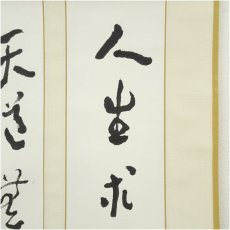 人生求
天道無